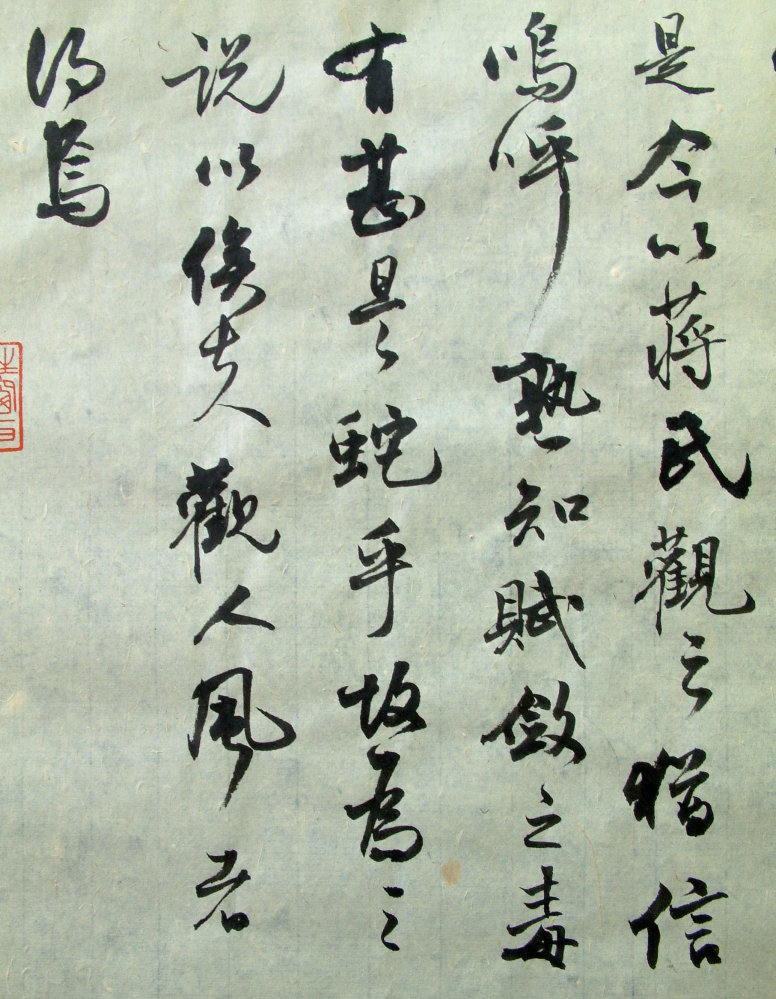 是今以蔣氏觀之猶信
嗚呼熟知賦斂之毒
有甚是蛇乎故為之
説以俟夫觀人風者
得焉